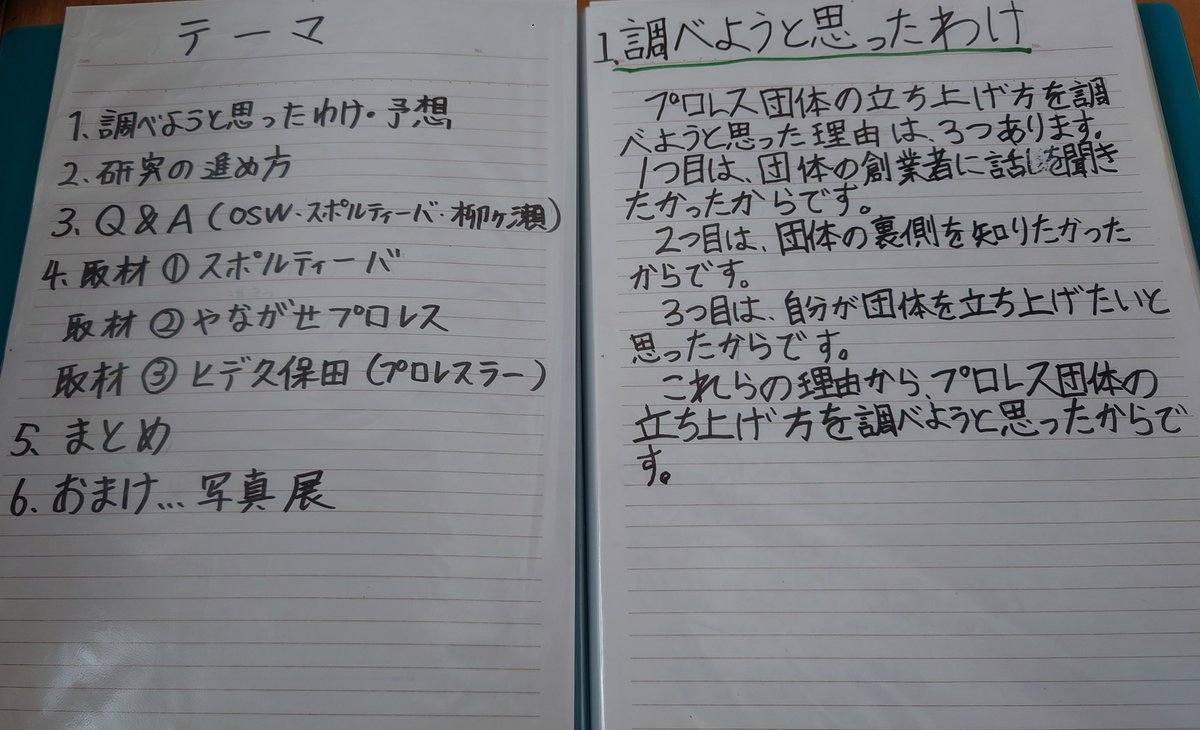 テーマ
1、調べようと思ったわけ・予想
2、研究の進め方
3、Q&A(OSW・スポルティーバ・柳ヶ瀬)
4、取材①スポルティーバ
取材②やながせプロレス
取材③ヒデ久保田(プロレスラー)
5、まとめ
6、おまけ…写真展
1、調べようと思ったわけ
プロレス団体の立ち上げ方を調
べようと思った理由は、3つあります。
1つ目は、団体の創業者に話しを聞き
たかったからです。
2つ目は、団体の裏側を知りたかった
からです。
3つ目は、自分が団体を立ち上げたいと
思ったからです。
これらの理由から、プロレス団体の
立ち上げ方を調べようと思ったからで
す。